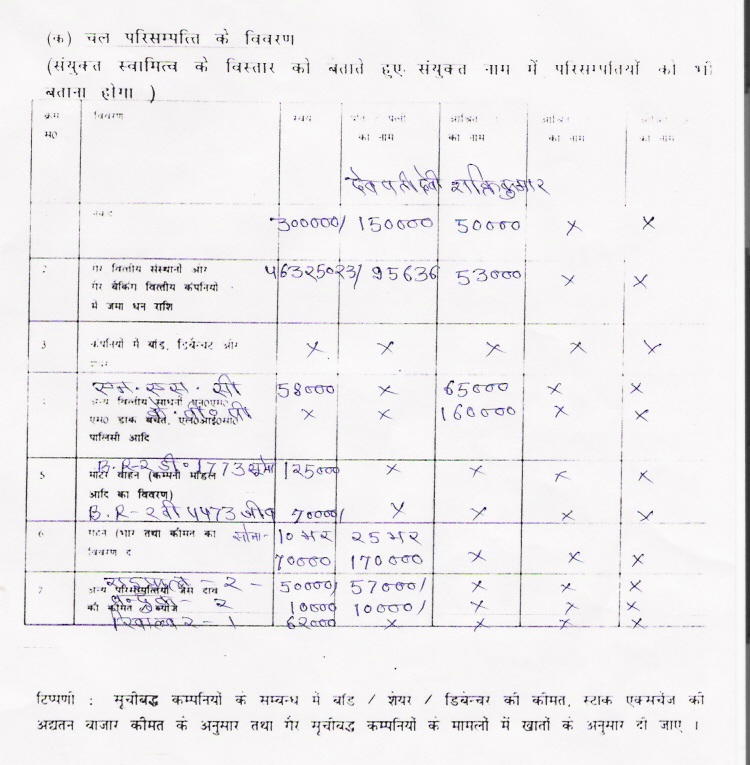 (क) चल परिसम्पत्ति के विवरण
(संयुक्त स्वामित्व के विस्तार को बताते हुए, संयुक्त नाम में परिसम्पतियों को भी
बताना होगा )
क्रम विवरण स्वयं पति पत्नी आश्रित आश्रित
स0 का नाम का नाम का नाम का नाम
देवपती देवी शक्ति कुमार
नकद 300000/ 150000 50000 × ×
गैर वित्तीय संस्थानों और 46325023/ 95636 53000 × ×
गैर बैंकिंग वित्तीय कंपनियों
में जमा धन राशि
3 कंपनियों में बांड, डिबेन्चर और × × × × ×
एन. एस. सी 58000 × 65000 × ×
अन्य वित्तीय
× × 160000 × ×
एम0 डाक बचत, एल0आई0सी0
पालिसी आदि
B.R-2 डी. 1773 सूमो 125000 × × × ×
5 मोटर वाहन (कम्पनी मॉडल
आदि का विवरण)
B.R-2 बी 4473 जीप 70000/ × × × ×
6 गहने (भार तथा कीमत का सोना- 10 भर 25 भर
विवरण द 70000 170000 × × ×
7 राइफल - 2 - 50000/ 57000/ × × ×
अन्य परिसम्पत्तियां जैसे दाव
की कीमत / ब्याज 2 10000 10000/ × × ×
रिवाल्वर - 1 62000 × × × ×
टिप्पणी : सूचीबद्ध कम्पनियों के सम्बन्ध में बांड / शेयर / डिबेन्चर की कीमत, स्टाक एक्सचेंज की
अद्यतन बाजार कीमत के अनुसार तथा गैर सूचीबद्ध कम्पनियों के मामलों में खातों के अनुसार दी जाए ।